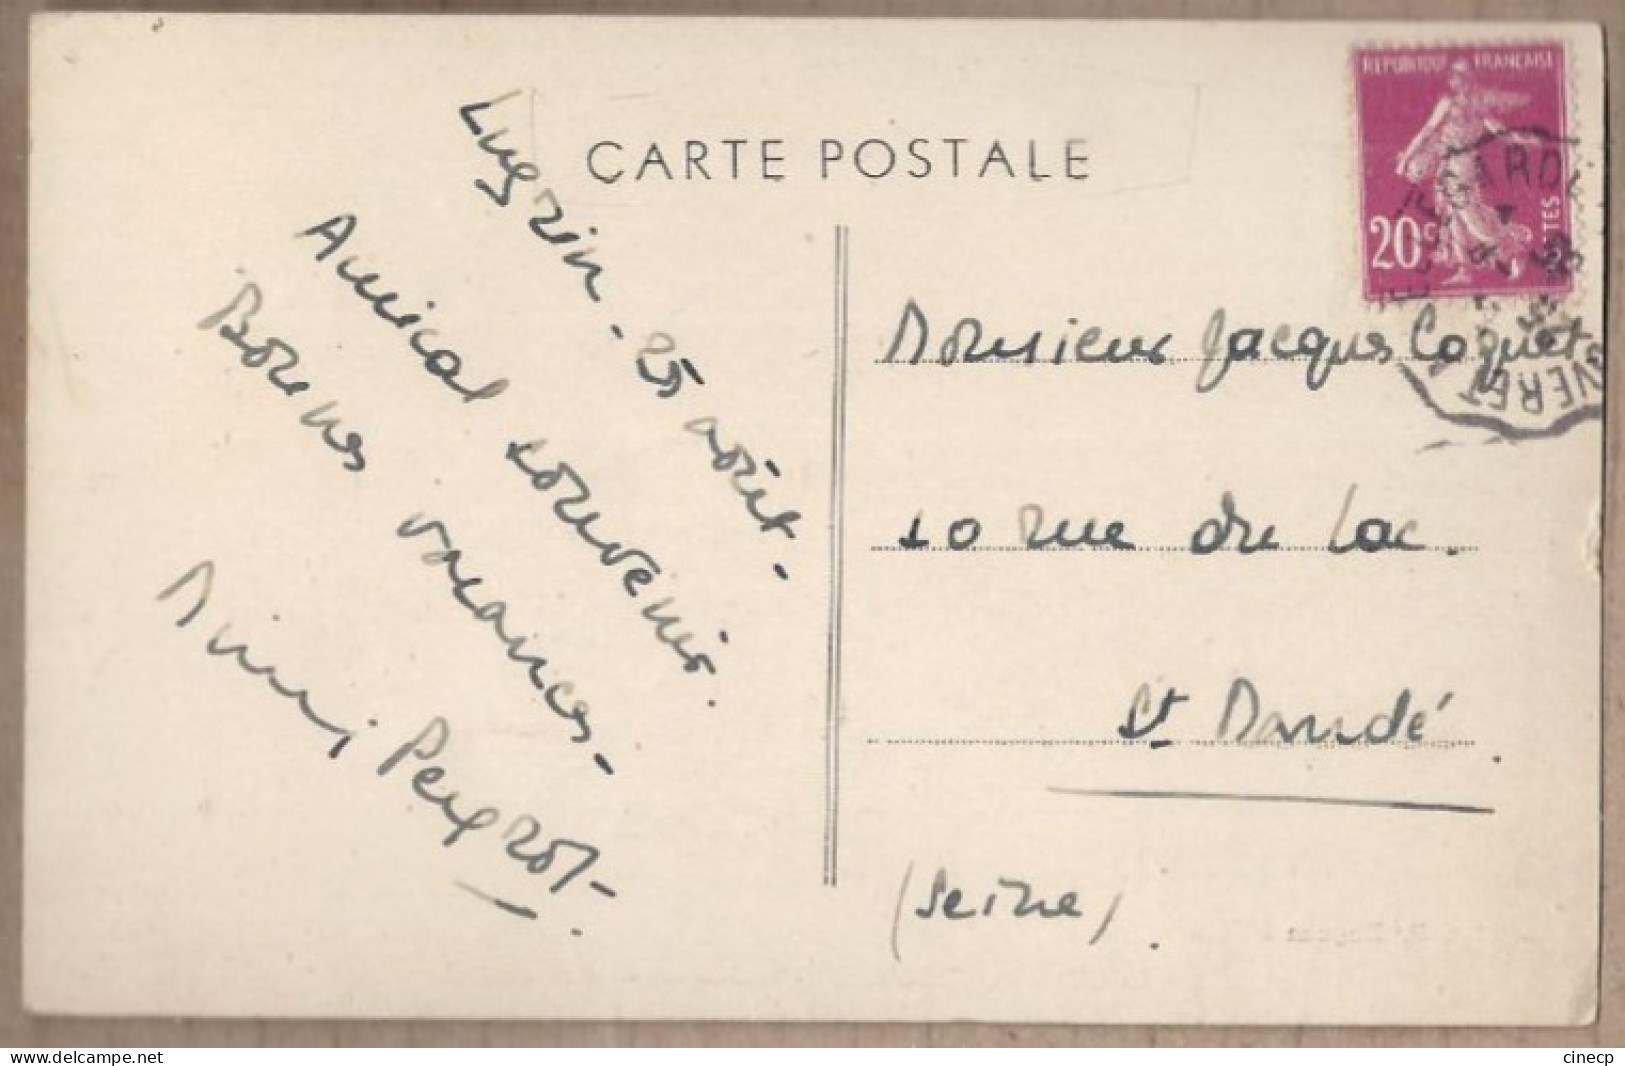 CARTE POSTALE
REPUBLIQUE FRANÇAISE
20c
Lugrin - 25 août -
Amical souvenir.
Bonnes vacances -
Mimi Peyrot -
Monsieur Jacques Coquet
10 rue du Lac.
St Mandé.
(Seine).
delcampe.net
cinecp